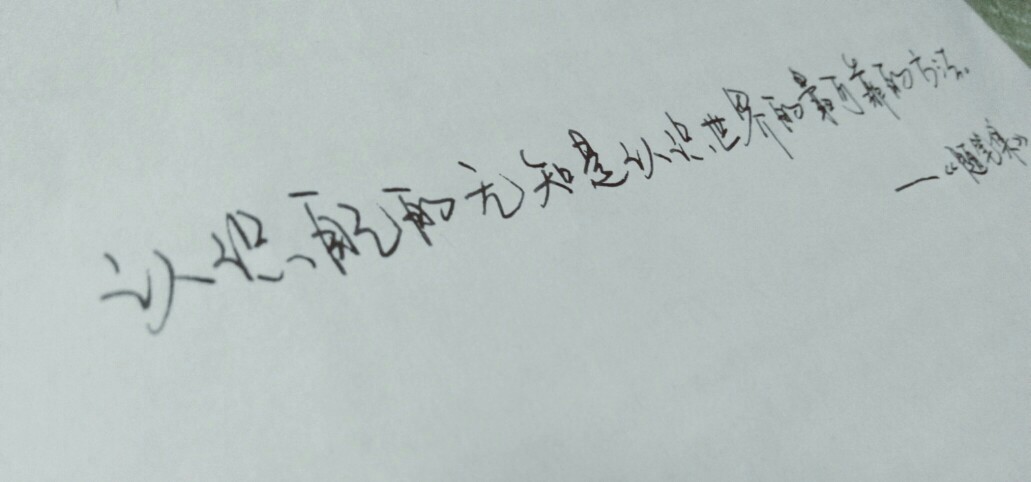 认识自己的无知是认识世界的最可靠的方法。
—《随笔集》